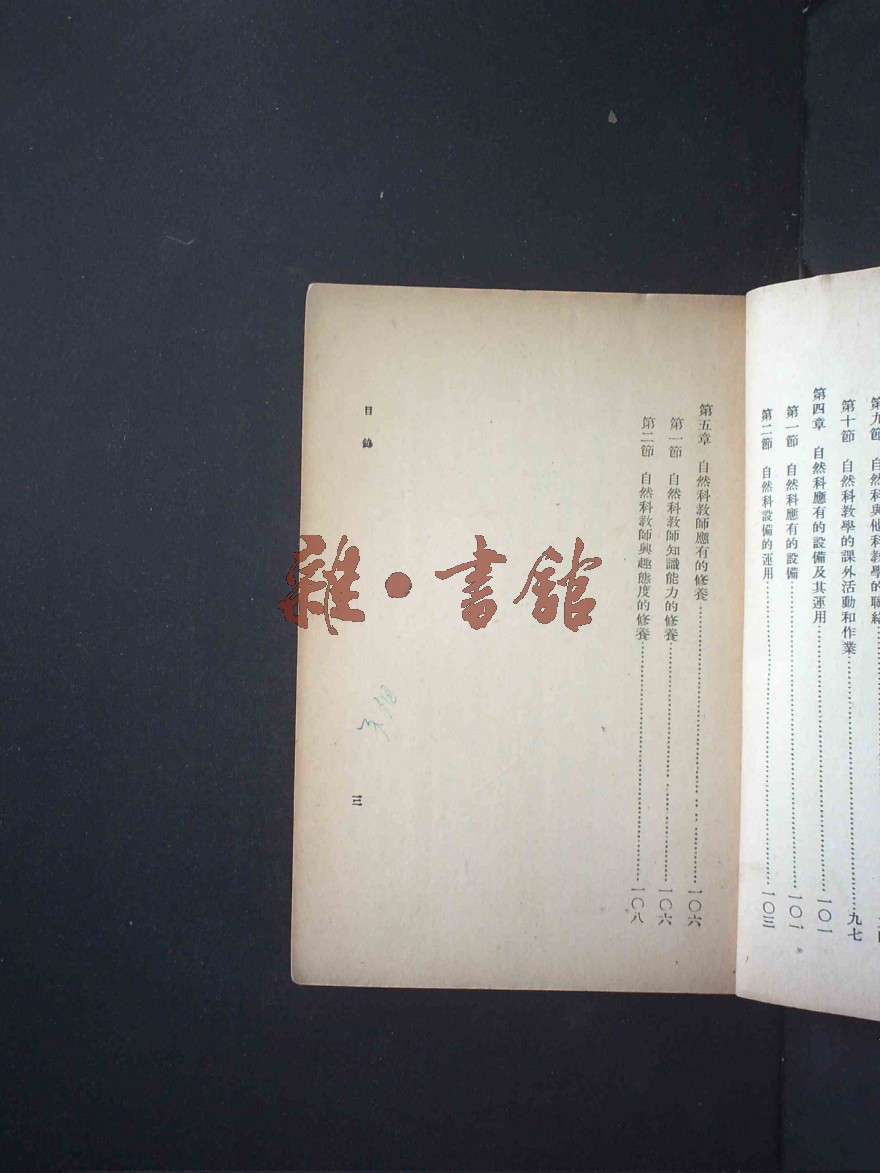 第九節 自然科與他科教學的聯絡
第十節 自然科教學的課外活動和作業……九七
第四章 自然科應有的設備及其運用……一〇一
第一節 自然科應有的設備……一〇一
第二節 自然科設備的運用……一〇三
第五章 自然科教師應有的修養……一〇六
第一節 自然科教師知識能力的修養……一〇六
第二節 自然科教師興趣態度的修養……一〇八
目錄
三
雜·書館